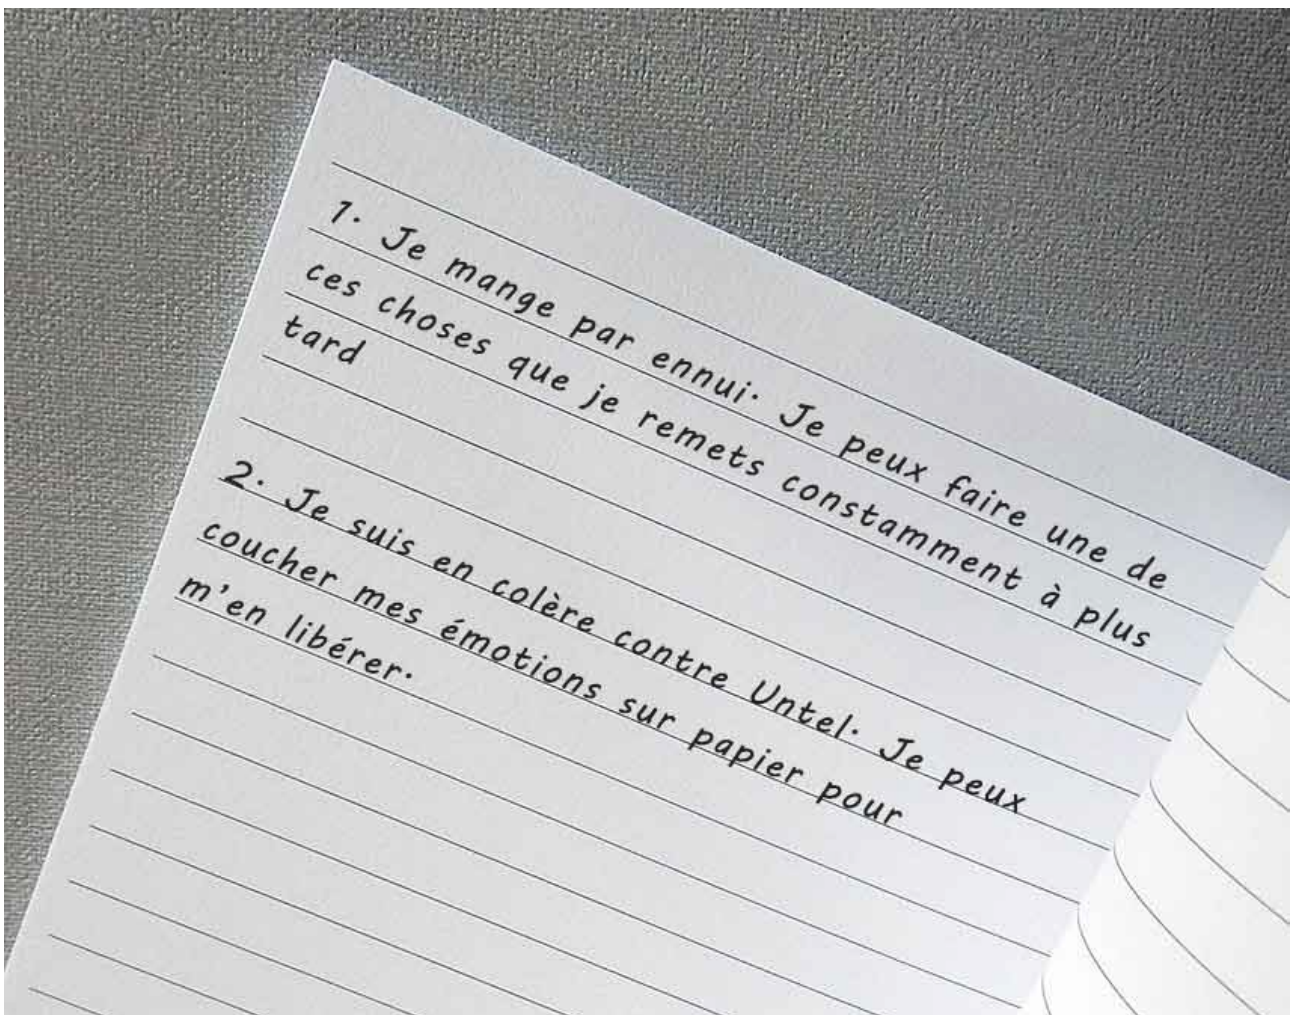 1. Je mange par ennui. Je peux faire une de
ces choses que je remets constamment à plus
tard
2. Je suis en colère contre Untel. Je peux
coucher mes émotions sur papier pour
m'en libérer.